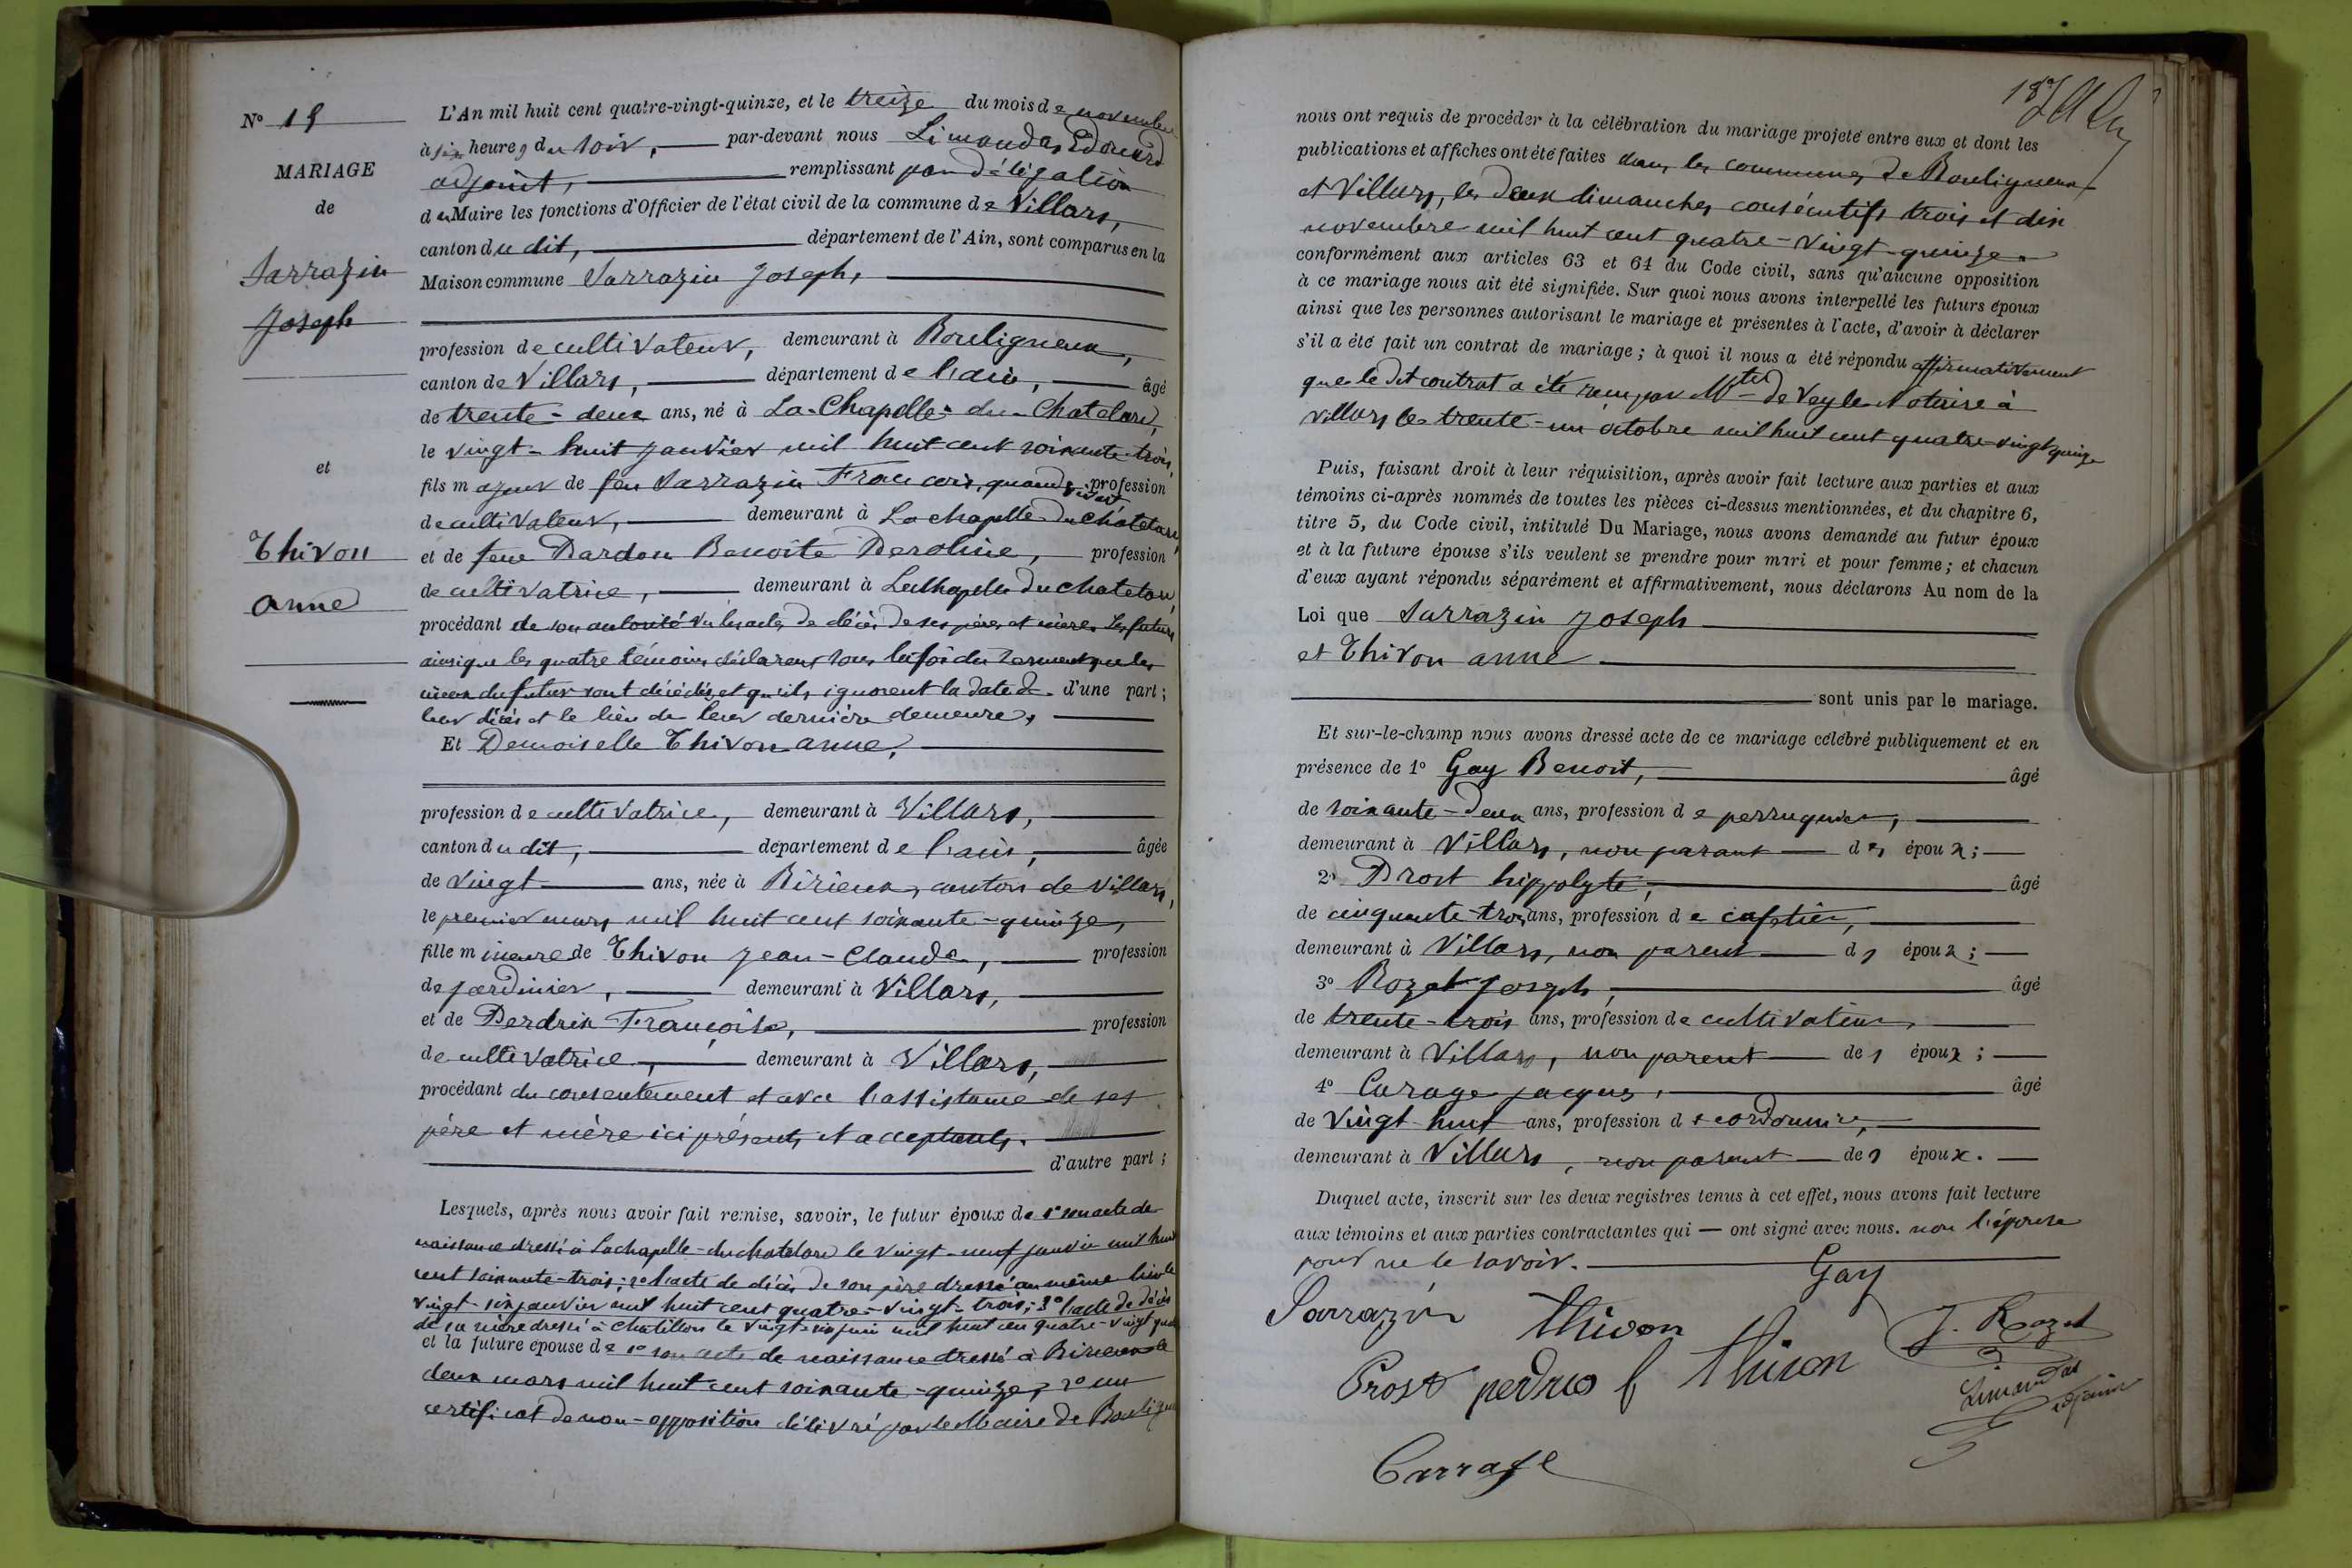 N° 19
MARIAGE
de
Sarrazin
Joseph
et
Thivon
Anne
L'An mil huit cent quatre-vingt-quinze, et le treize du mois de novembre
à six heures du soir, par-devant nous Limandas Edouard
adjoint, remplissant par délégation
du Maire les fonctions d'Officier de l'état civil de la commune de Villars,
canton du dit, département de l'Ain, sont comparus en la
Maison commune Sarrazin Joseph,
profession de cultivateur, demeurant à Bouligneux,
canton de Villars, département de l'ain, âgé
de trente-deux ans, né à La-Chapelle-du-Chatelard,
le vingt-huit janvier mil huit cent soixante-trois,
fils majeur de feu Sarrazin Francois, quand vivait profession
de cultivateur, demeurant à La chapelle-du Châtelard,
et de feue Dardon Benoite Deroline, profession
de cultivatrice, demeurant à La Chapelle du chatelard,
procédant de son autorité vu les actes de décès de ses père et mère. Les futurs
ainsi que les quatre témoins déclarent sous la foi du serment que les
aieux du futur sont décédés et qu'ils ignorent la date de d'une part;
leur décès et le lieu de leur dernière demeure,
Et Demoiselle Thivon anne,
profession de cultivatrice, demeurant à Villars,
canton du dit, département de l'ain, âgée
de vingt ans, née à Birieux, canton de Villars,
le premier mars mil huit cent soixante-quinze,
fille mineure de Thivon Jean-Claude, profession
de jardinier, demeurant à Villars,
et de Perdrix Françoise, profession
de cultivatrice, demeurant à Villars,
procédant du consentement et avec l'assistance de ses
père et mère ici présents et acceptants.
d'autre part;
Lesquels, après nous avoir fait remise, savoir, le futur époux de 1° son acte de
naissance dressé à Lachapelle-du chatelard le vingt-neuf janvier mil huit
cent soixante-trois; 2° l'acte de décès de son père dressé au même lieu le
vingt-six janvier mil huit cent quatre-vingt-trois; 3° l'acte de décès
de sa mère dressé à Chatillon le vingt-six juin mil huit cent quatre-vingt
et la future épouse de 1° son acte de naissance dressé à Birieux le
deux mars mil huit cent soixante-quinze, 2° un
certificat de non-opposition délivré par le Maire de Bouligneux
187
nous ont requis de procéder à la célébration du mariage projeté entre eux et dont les
publications et affiches ont été faites dans les communes de Bouligneux
et Villars, les deux dimanches consécutifs trois et dix
novembre mil huit cent quatre-vingt-quinze.
conformément aux articles 63 et 64 du Code civil, sans qu'aucune opposition
à ce mariage nous ait été signifiée. Sur quoi nous avons interpellé les futurs époux
ainsi que les personnes autorisant le mariage et présentes à l'acte, d'avoir à déclarer
s'il a été fait un contrat de mariage; à quoi il nous a été répondu affirmativement
que le dit contrat a été reçu par Mtre de Veyle Notaire à
Villars le trente-un octobre mil huit cent quatre-vingt quinze
Puis, faisant droit à leur réquisition, après avoir fait lecture aux parties et aux
témoins ci-après nommés de toutes les pièces ci-dessus mentionnées, et du chapitre 6,
titre 5, du Code civil, intitulé Du Mariage, nous avons demandé au futur époux
et à la future épouse s'ils veulent se prendre pour mari et pour femme; et chacun
d'eux ayant répondu séparément et affirmativement, nous déclarons Au nom de la
Loi que Sarrazin Joseph
et Thivon anne
sont unis par le mariage.
Et sur-le-champ nous avons dressé acte de ce mariage célébré publiquement et en
présence de 1° Gay Benoit, âgé
de soixante-deux ans, profession de perruquier,
demeurant à Villars, non parent des époux;
2° Prost hippolyte, âgé
de cinquante-trois ans, profession de cafetier,
demeurant à Villars, non parent ds époux;
3° Rozet Joseph, âgé
de trente-trois ans, profession de cultivateur,
demeurant à Villars, non parent des époux;
4° Carage jacques, âgé
de vingt huit ans, profession de cordonnier,
demeurant à Villars, non parent des époux.
Duquel acte, inscrit sur les deux registres tenus à cet effet, nous avons fait lecture
aux témoins et aux parties contractantes qui — ont signé avec nous. non l'épouse
pour ne le savoir.
Gay
Sarrazin Thivon J. Rozet
Prost perdrix f Thivon
Limandas adjoint
Carrage